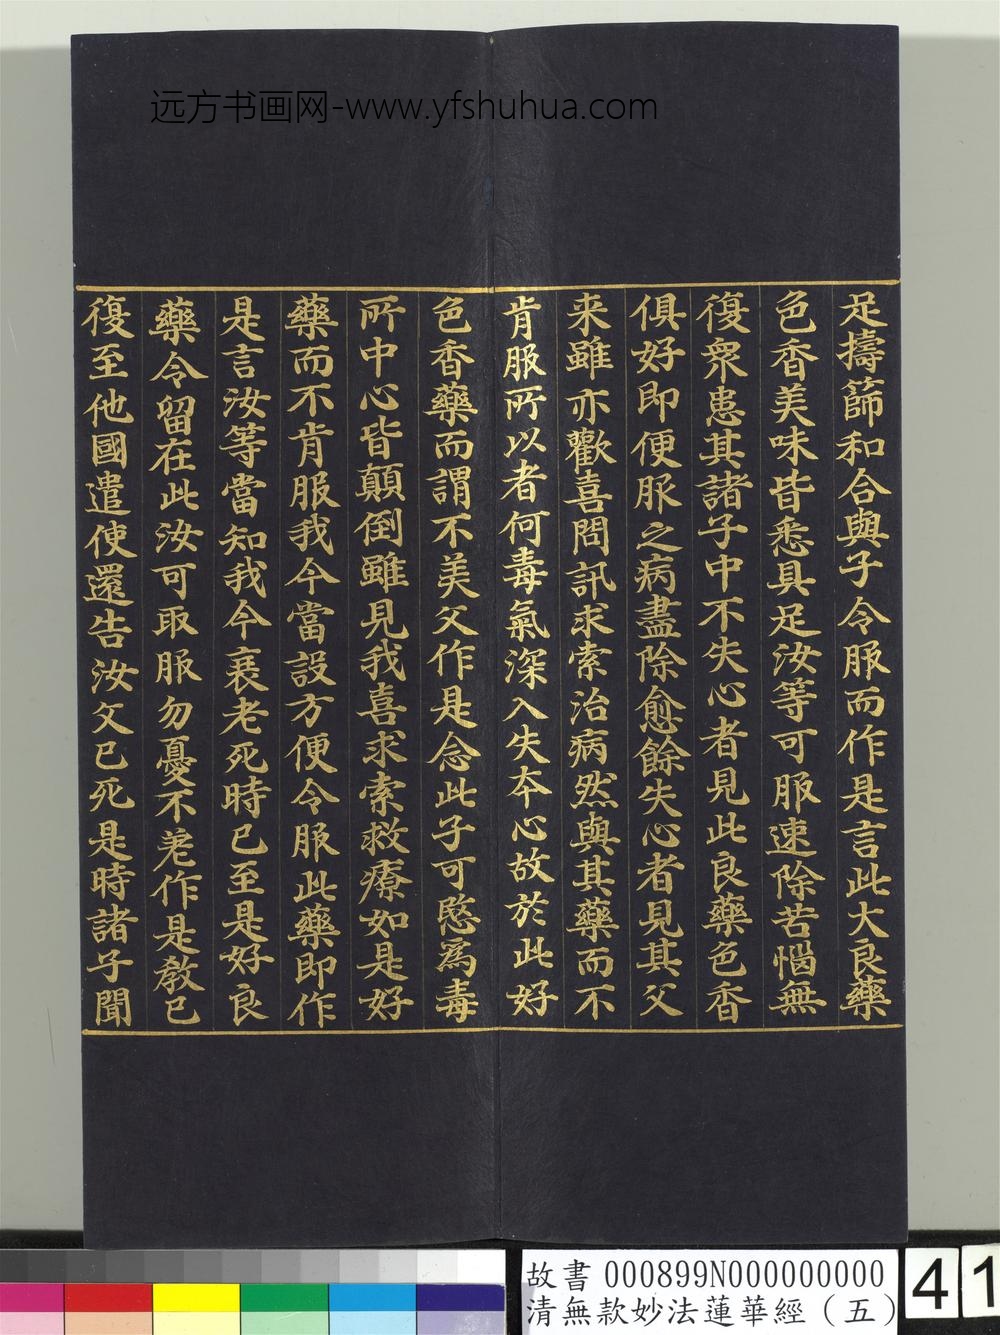 远方书画网-www.yfshuhua.com
足擣篩和合與子令服而作是言此大良藥
色香美味皆悉具足汝等可服速除苦惱無
復衆患其諸子中不失心者見此良藥色香
俱好即便服之病盡除愈餘失心者見其父
来雖亦歡喜問訊求索治病然與其藥而不
肯服所以者何毒氣深入失本心故於此好
色香藥而謂不美父作是念此子可愍為毒
所中心皆顛倒雖見我喜求索救療如是好
藥而不肯服我今當設方便令服此藥即作
是言汝等當知我今衰老死時已至是好良
藥今留在此汝可取服勿憂不差作是教已
復至他國遣使還告汝父已死是時諸子聞
故書 000899N000000000
清無款妙法蓮華經（五）
41